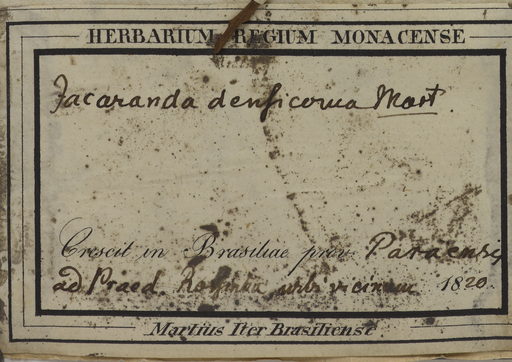 HERBARIUM REGIUM MONACENSE
Jacaranda densicoma Mart.
Crescit in Brasiliae prov. Paraensi,
ad Praed. urbi vicinum 1820.
Martius Iter Brasiliense.